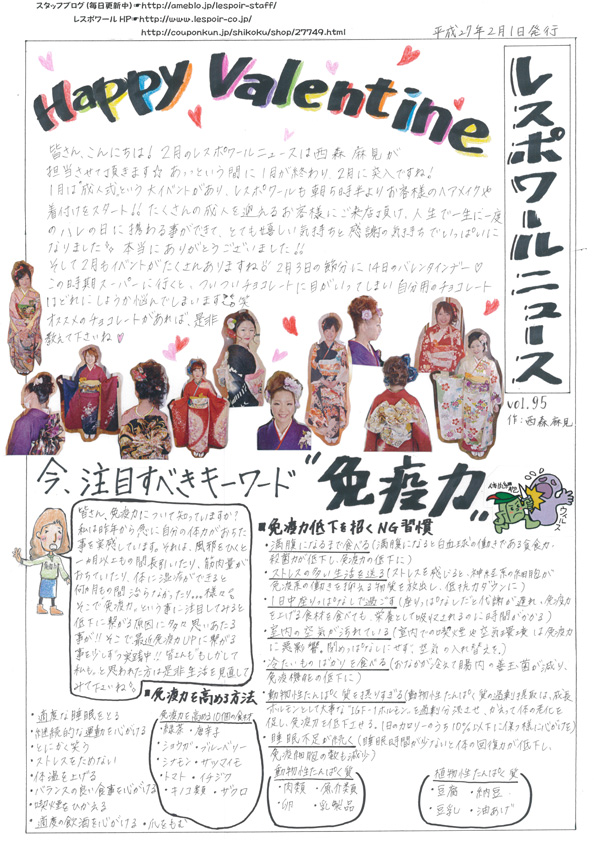 スタッフブログ(毎日更新中)☞http://ameblo.jp/lespoir-staff/
レスポワールHP☞http://www.lespoir-co.jp/
http://couponkun.jp/shikoku/shop/27749.html
平成27年2月1日発行
Happy Valentine
レスポワールニュース
vol.95
作:西森麻見
皆さん、こんにちは!2月のレスポワールニュースは西森麻見が
担当させて頂きます☆ あっという間に1月が終わり、2月に突入ですね!
1月は"成人式"という大イベントがあり、レスポワールも朝5時半よりお客様のヘアメイクや
着付けをスタート!!たくさんの成人を迎えるお客様にご来店頂け、人生で一生に一度
のハレの日に携わる事ができて、とても嬉しい気持ちと感謝の気持ちでいっぱいに
なりました 本当にありがとうございました!!
そして2月もイベントがたくさんありますね 2月3日の節分に14日のバレンタインデー♡
この時期スーパーに行くと、ついついチョコレートに目がいってしまい自分用のチョコレート
はどれにしようか悩んでしまいます 笑
オススメのチョコレートがあれば、是非
教えて下さいね♡
今、注目すべきキーワード"免疫力"
ウイルス
皆さん、免疫力について知っていますか?
私は昨年から急に自分の体力がおちた
事を実感しています。それは、風邪をひくと
一ヵ月以上もの間長引いたり、筋肉量が
おちていたり、体に湿疹ができると
何ヵ月もの間治らなかったり…。様々。
そこで"免疫力"という事に注目してみると
低下に繋がる原因に多々思いあたる
事が!!そこで最近免疫力UPに繋がる
事を少しずつ実践中!!皆さんも"もしかして
私も。"と思われた方は是非生活を見直して
みて下さいね
■免疫力を高める方法
・適度な睡眠をとる
・継続的な運動を心がける
・とにかく笑う
・ストレスをためない
・体温を上げる
・バランスの良い食事を心がける
・喫煙をひかえる
・適度の飲酒を心がける ・爪をもむ
免疫力を高める10個の食材
・緑茶 ・海草
・ショウガ・ブルーベリー
・シナモン・サツマイモ
・トマト ・イチジク
・キノコ類 ・ザクロ
■免疫力低下を招くNG習慣
・満腹になるまで食べる(満腹になると白血球の働きである貪食力、
殺菌力が低下し、免疫力の低下に)
・ストレスの多い生活を送る(ストレスを感じると、神経系の細胞が
免疫系の働きを抑える物質を放出し、低抗力ダウンに)
・1日中座りっぱなしで過ごす(座りっぱなしだと代謝が遅れ、免疫力
を上げる食材を食べても、栄養として吸収されるのに時間がかかる)
・室内の空気が汚れている(室内での喫煙や空気環境は免疫力
に悪影響。閉めっぱなしにせず、空気の入れ替えを)
・冷たいものばかりを食べる(おなかが冷えて腸内の善玉菌が減り、
免疫機能の低下に)
・動物性たんぱく質を摂りすぎる(動物性たんぱく質の過剰摂取は、成長
ホルモンとして大事な"IGF-1ホルモン"を過剰分泌させ、かえって体の老化を
促し、免疫力を低下させる。1日のカロリーのうち10%以下に保つ様に心がけを)
・睡眠不足が続く(睡眠時間が少ないと体の回復力が低下し、
免疫細胞の数も減少)
動物性たんぱく質
・肉類 ・魚介類
・卵 ・乳製品
植物性たんぱく質
・豆腐 ・納豆
・豆乳 ・油あげ